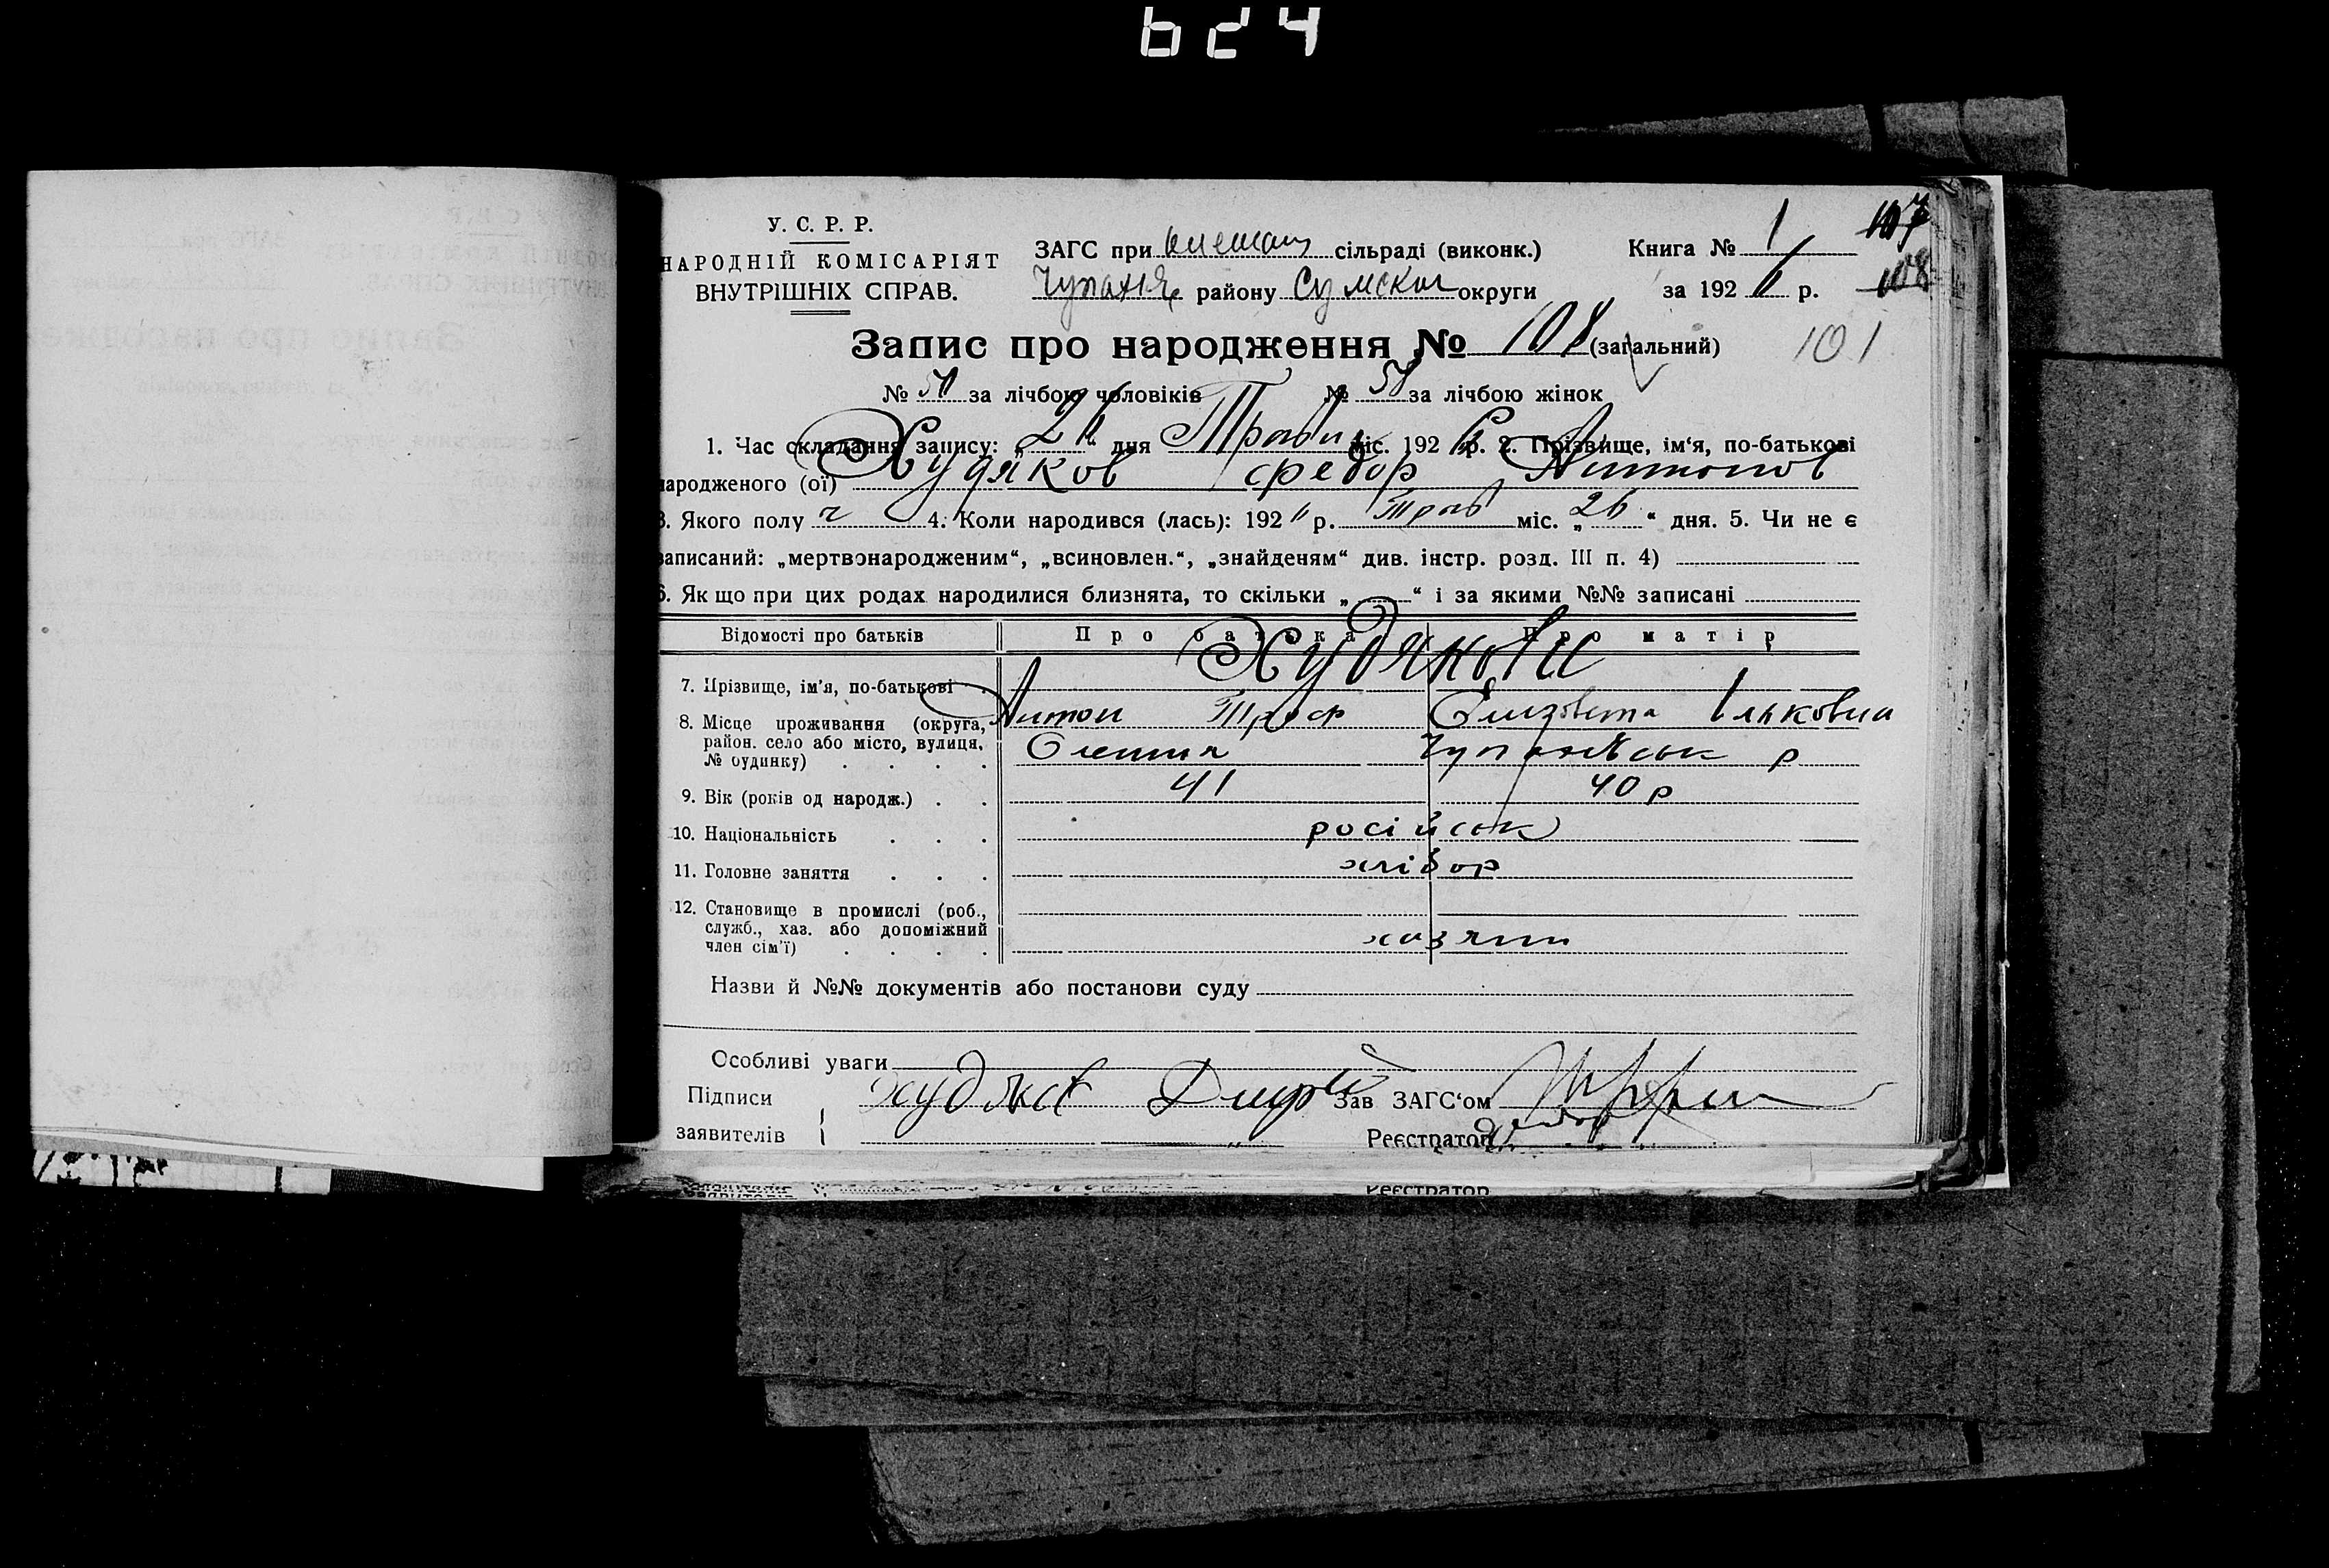 624
У. С. Р. Р.
НАРОДНІЙ КОМІСАРІЯТ
ВНУТРІШНІХ СПРАВ.
ЗАГС при сільраді (виконк.)
району Сумской округи
Книга № 1
за 192 р.
107
108
101
Запис про народження № 108 (загальний)
№ за лічбою чоловіків № за лічбою жінок
1. Час складання запису: „26“ дня Травн міс. 192 р. 2. Прізвище, ім‘я, по-батькові
народженого (ої) Худяков Федор Антонов
3. Якого полу ч 4. Коли народився (лась): 192 р. Трав міс. „26“ дня. 5. Чи не є
записаний: „мертвонародженим“, „всиновлен.“, „знайденям“ див. інстр. розд. III п. 4)
6. Як що при цих родах народилися близнята, то скільки „ “ і за якими №№ записані
Відомості про батьків Про батька Про матір
Худякови
7. Прізвище, ім’я, по-батькові
Антон Троф Елизовета Ильковна
8. Місце проживання (округа,
район. село або місто, вулиця,
№ будинку)
9. Вік (років од народж.) 41 40 р
10. Національність російськ
11. Головне заняття хлібор
12. Становище в промислі (роб.,
служб., хаз. або допоміжний
член сім’ї) хазяин
Назви й №№ документів або постанови суду
Особливі уваги
Підписи Худяков Зав ЗАГС‘ом
заявителів Реєстратор
Реєстратор